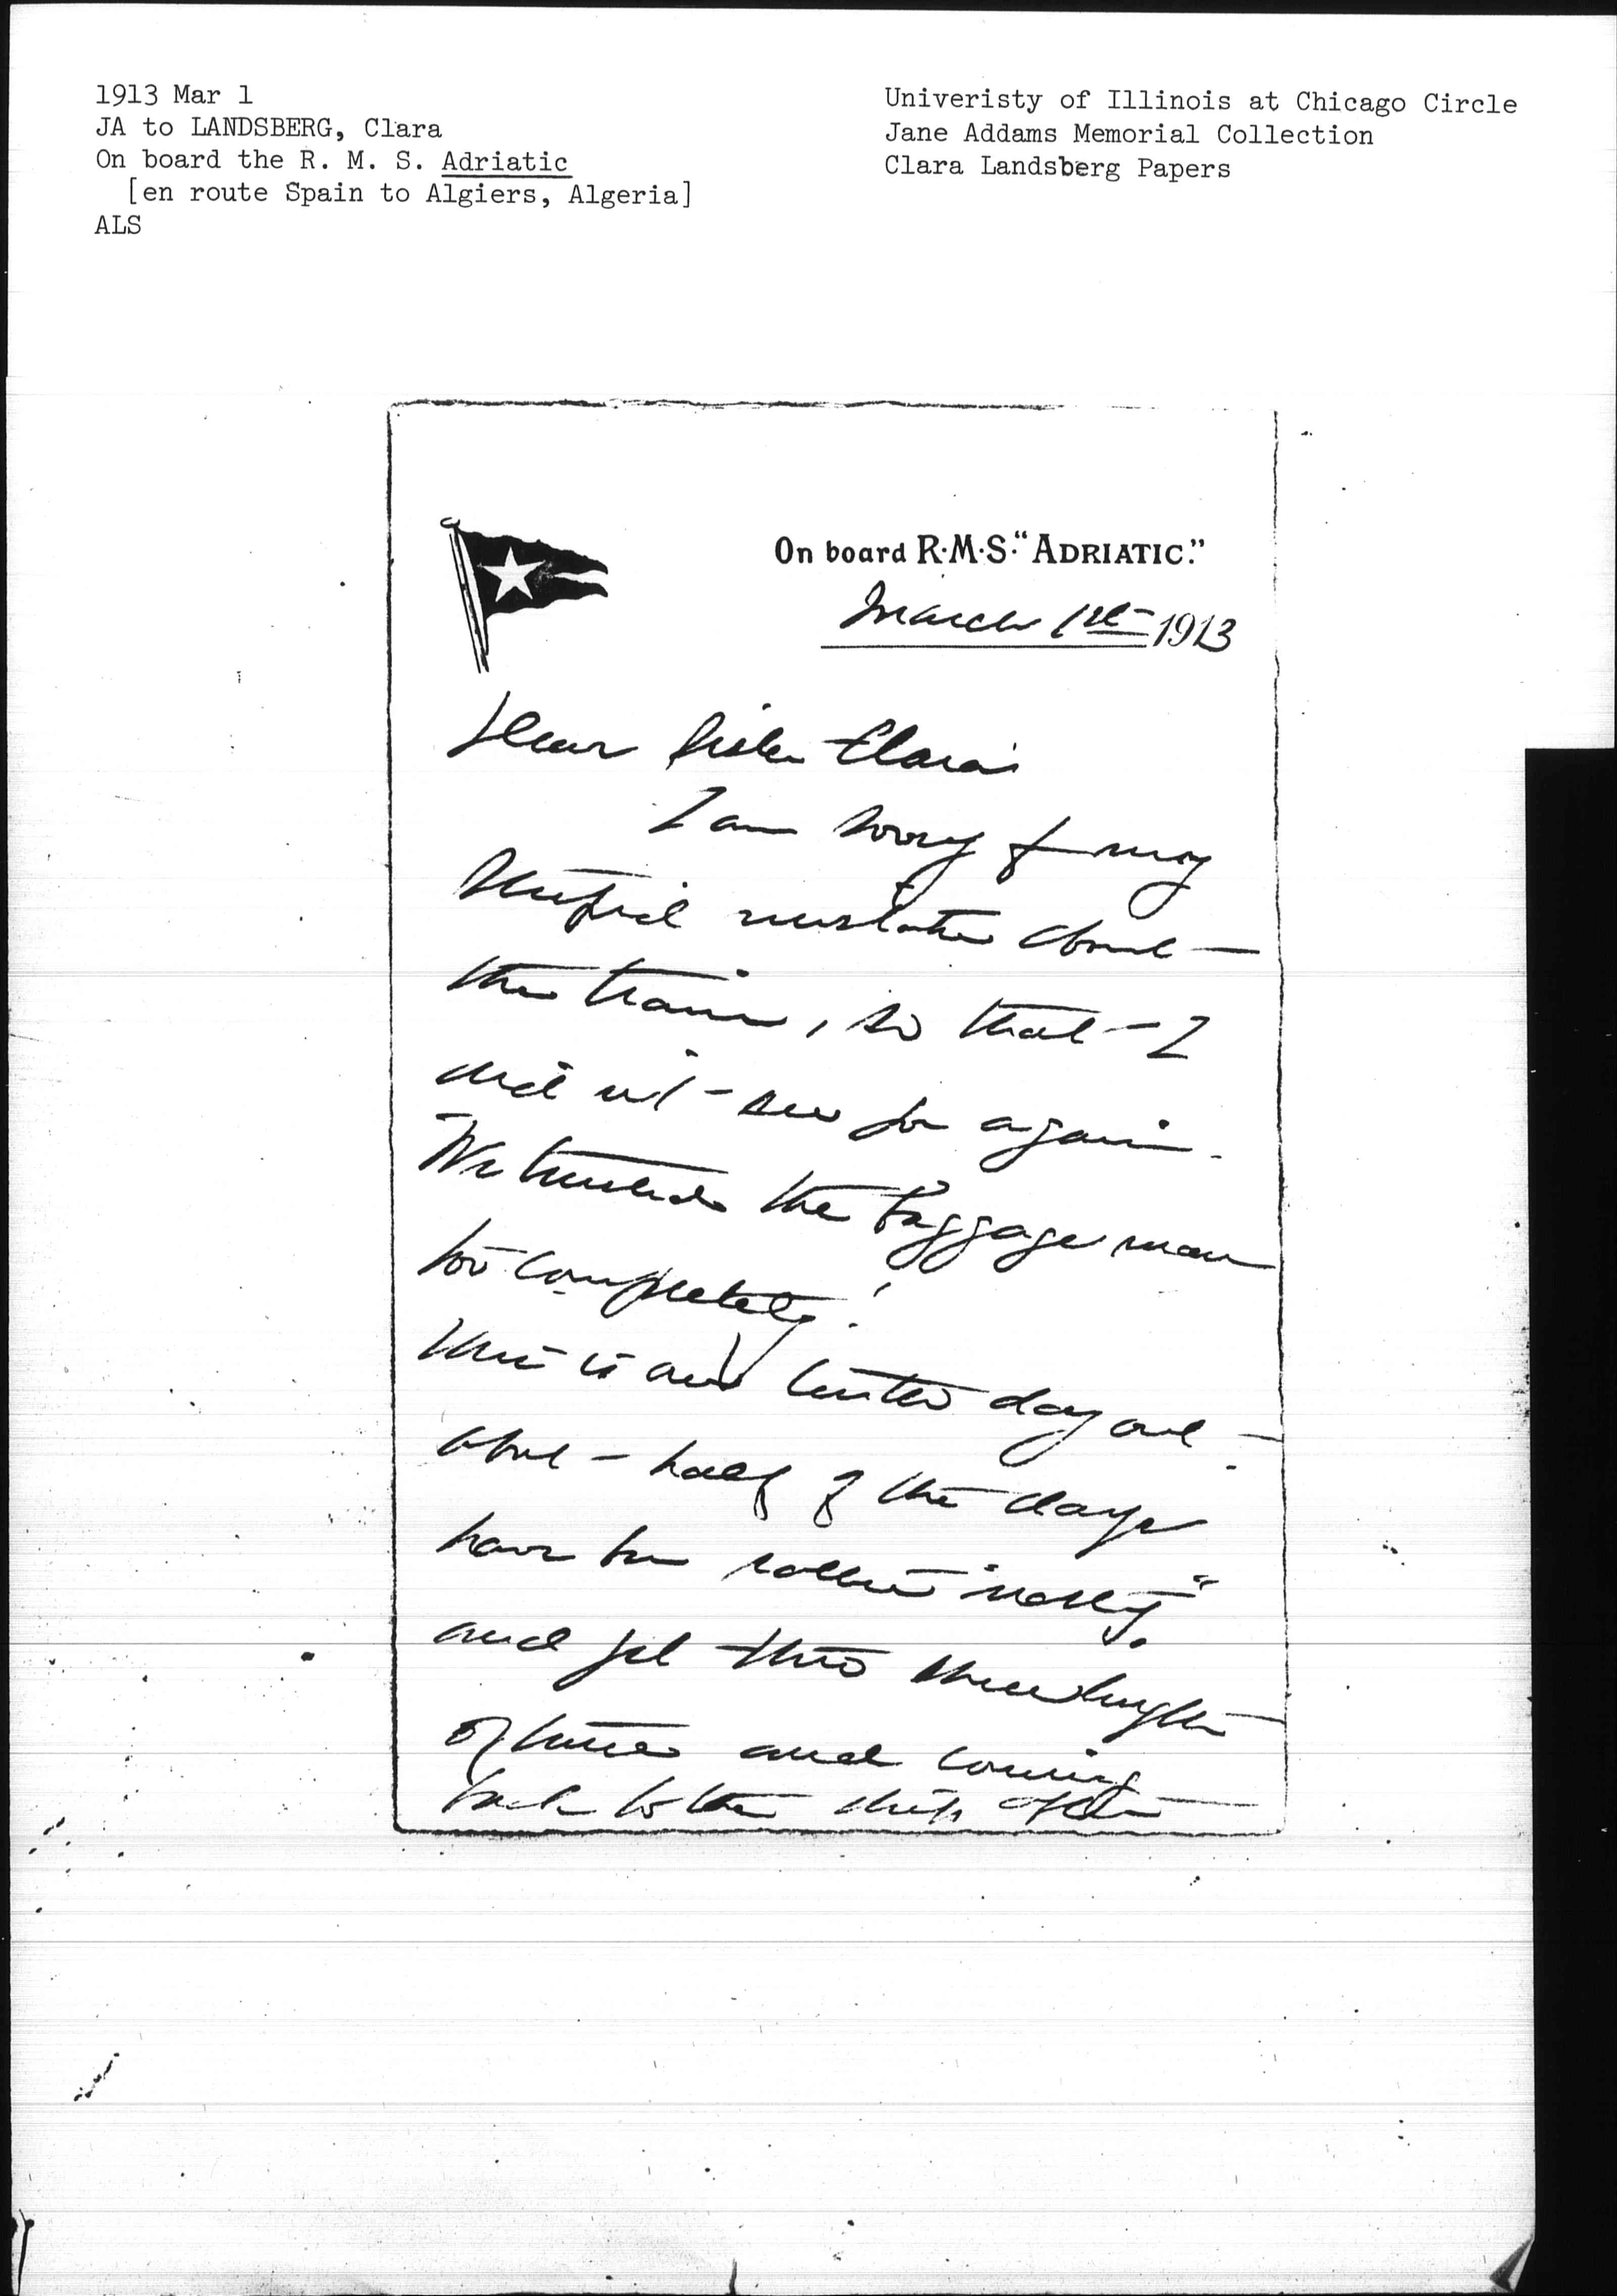 1913 Mar 1
JA to LANDSBERG, Clara
On board the R. M. S. Adriatic
[en route Spain to Algiers, Algeria]
ALS
Univeristy of Illinois at Chicago Circle
Jane Addams Memorial Collection
Clara Landsberg Papers
On board R·M·S·"ADRIATIC."
March 1st 1913
Dear Sister Clara
I am sorry of my
stupid mistake about
the train, so that I
did not see you again.
We trusted the baggage man
too completely!
This is our tenth day out
about half of the days
have been rather "nasty".
and yet this
of time and coming
back to the ship after